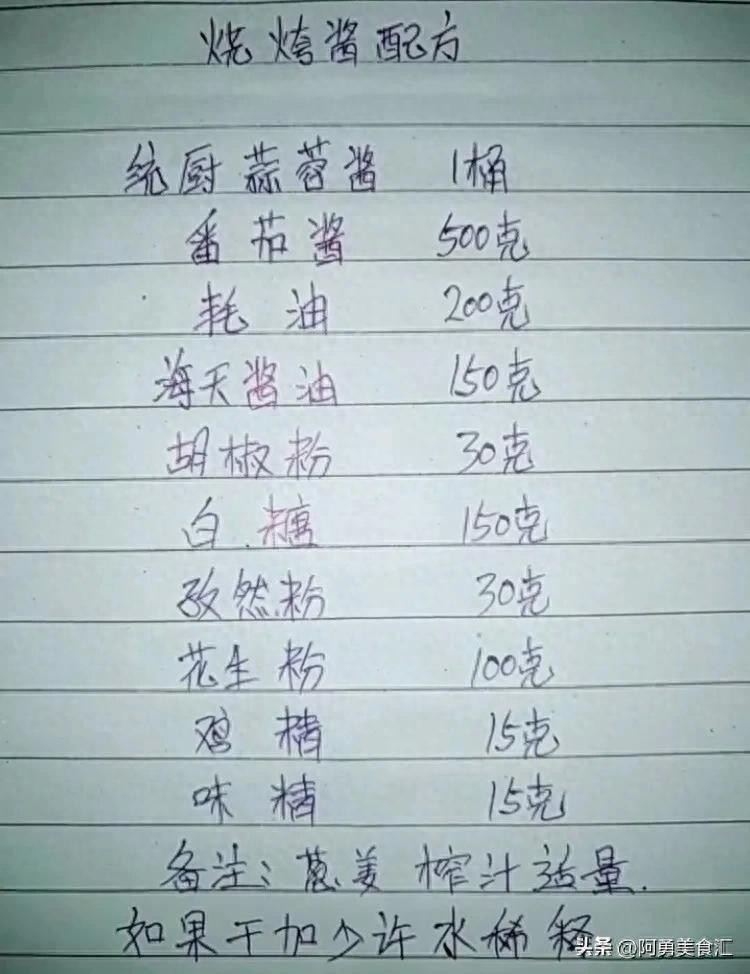 烧烤酱配方
统厨蒜蓉酱 1桶
番茄酱 500克
耗油 200克
海天酱油 150克
胡椒粉 30克
白糖 150克
孜然粉 30克
花生粉 100克
鸡精 15克
味精 15克
备注:葱姜榨汁适量.
如果干加少许水稀释
头条 @阿勇美食汇